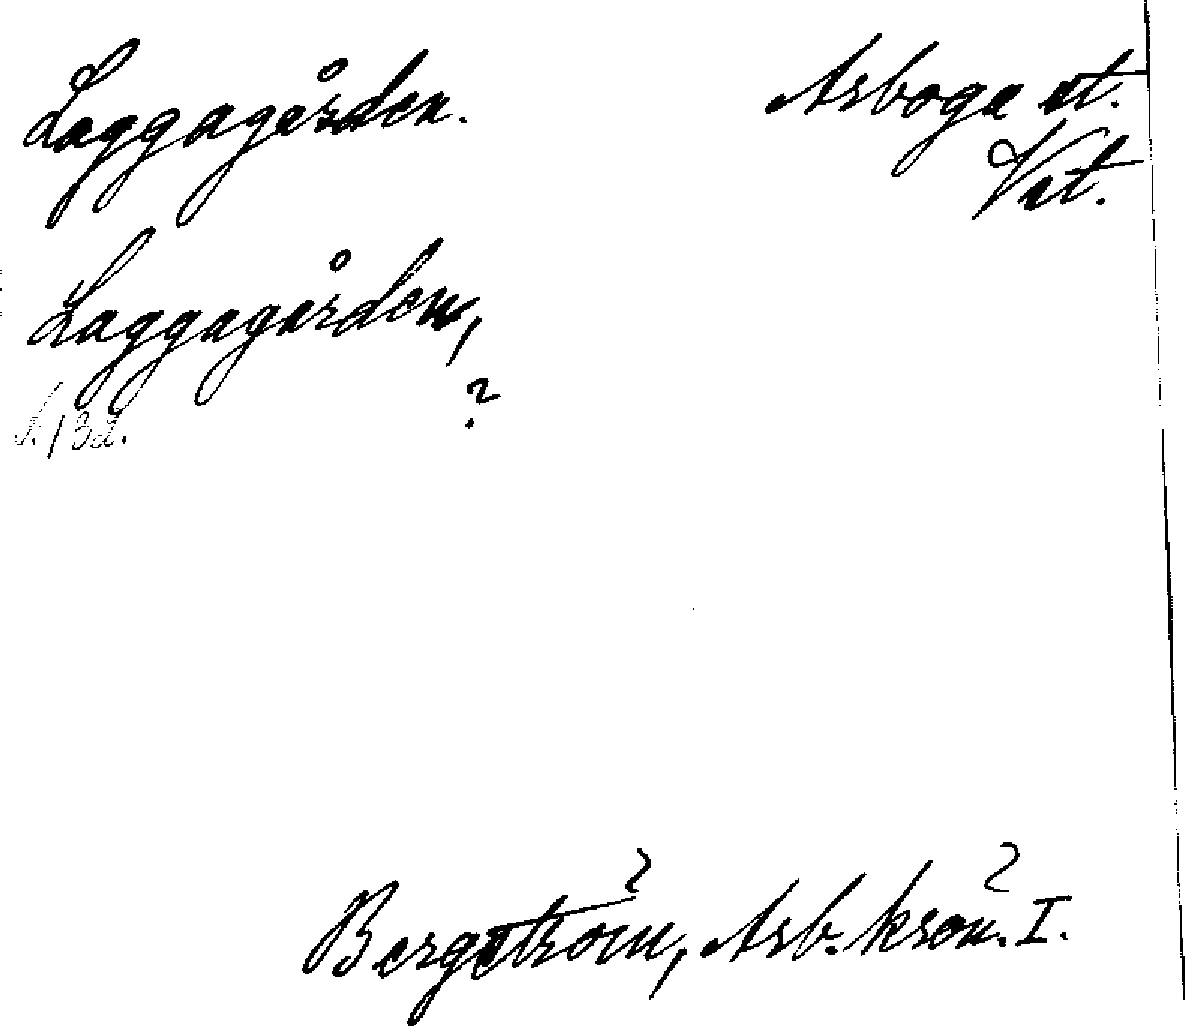 Laggagården. Arboga st.
Vst.
Laggagården,
?
s. 132.
Bergström, Arb. krön. I.